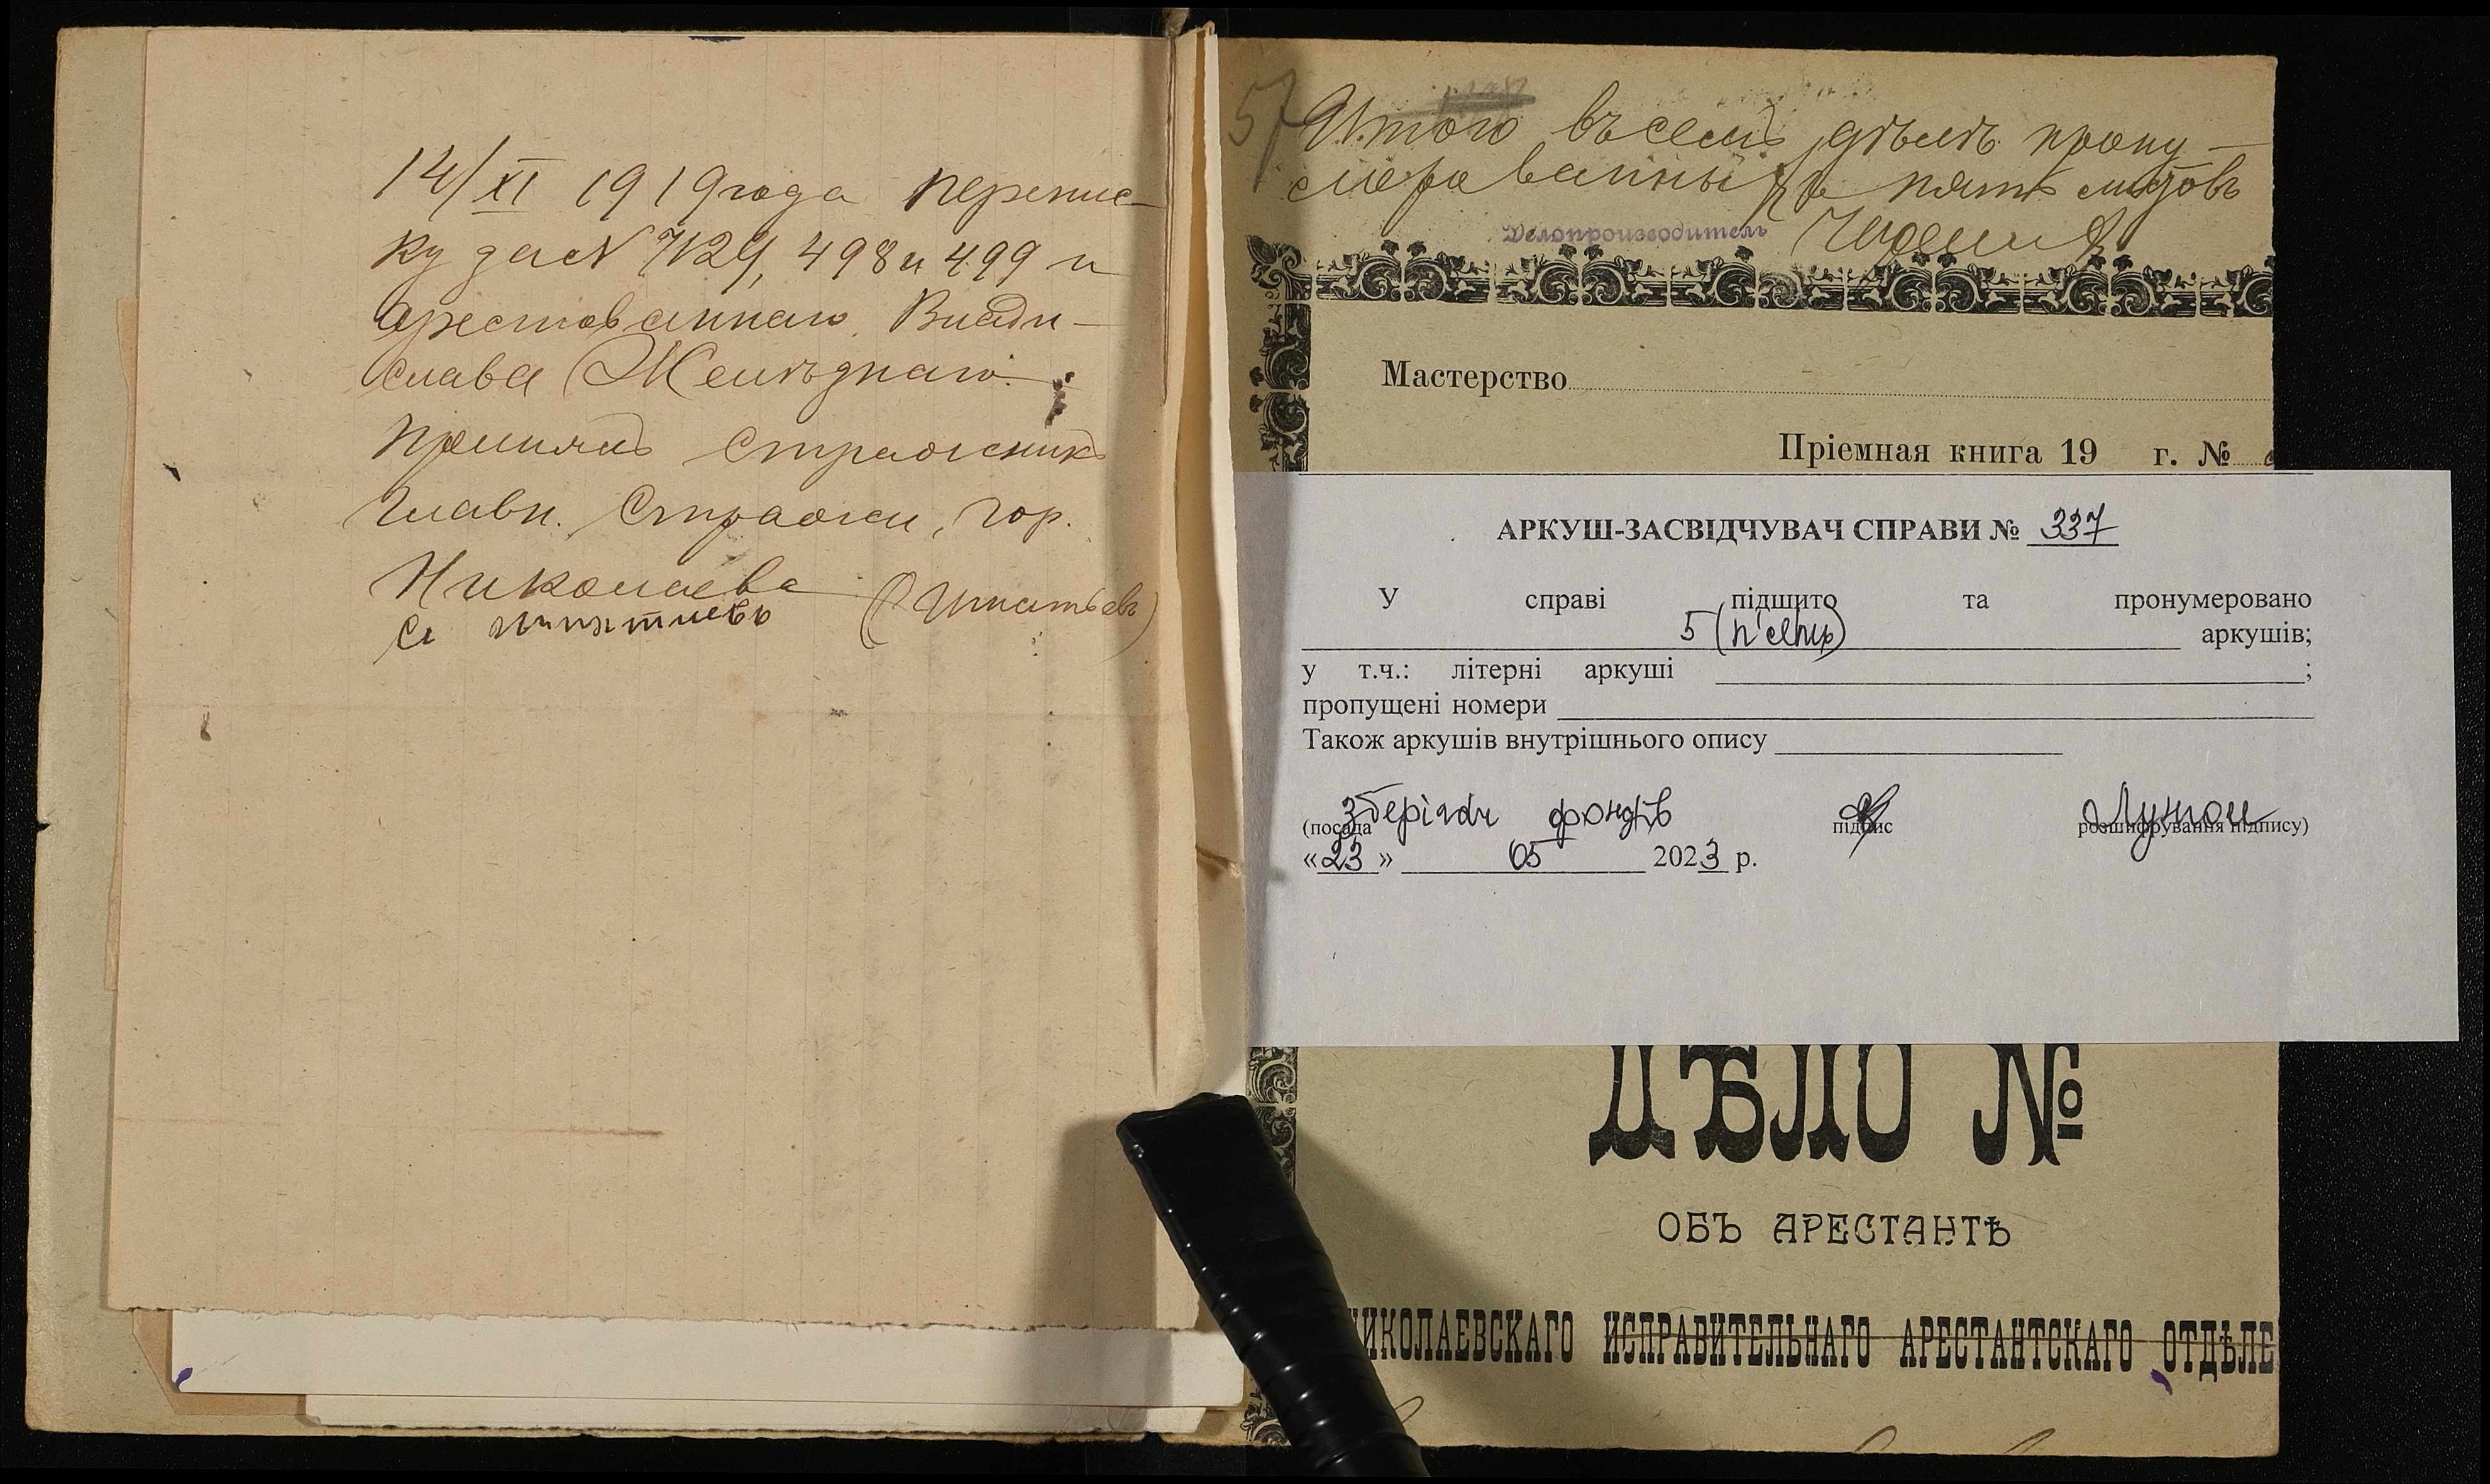 14/XI 1919 года перепис-
ку за № 7129, 498 и 499 и
арестованнаго Влади-
слава Желѣзнаго
принялъ Стражникъ
Главн. Стражи, гор.
Николаева
(Игнатьевъ)
57
Итого въ семъ дѣлѣ прону-
мерованныхъ пять листовъ
Делопроизводитель
Мастерство
Пріемная книга 19 г. №
АРКУШ-ЗАСВІДЧУВАЧ СПРАВИ № 337
У справі підшито та пронумеровано
5 (п'ять) аркушів;
у т.ч.: літерні аркуші ;
пропущені номери
Також аркушів внутрішнього опису
зберігач фондів
(посада підпис розшифрування підпису)
«23» 05 2023 р.
ДѢЛО №
ОБЪ АРЕСТАНТѢ
НИКОЛАЕВСКАГО ИСПРАВИТЕЛЬНАГО АРЕСТАНТСКАГО ОТДѢЛЕ